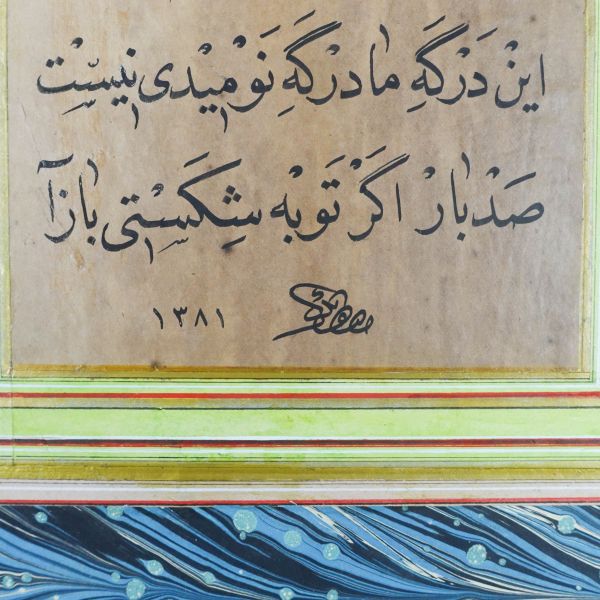 اینْ دَرْگَهِ ما درگهِ نَوْمیْدی نیسْت
صَدْ بارْ اگَرْ تَوْبهْ شِکَسْتی بازآ
۱۳۸۱